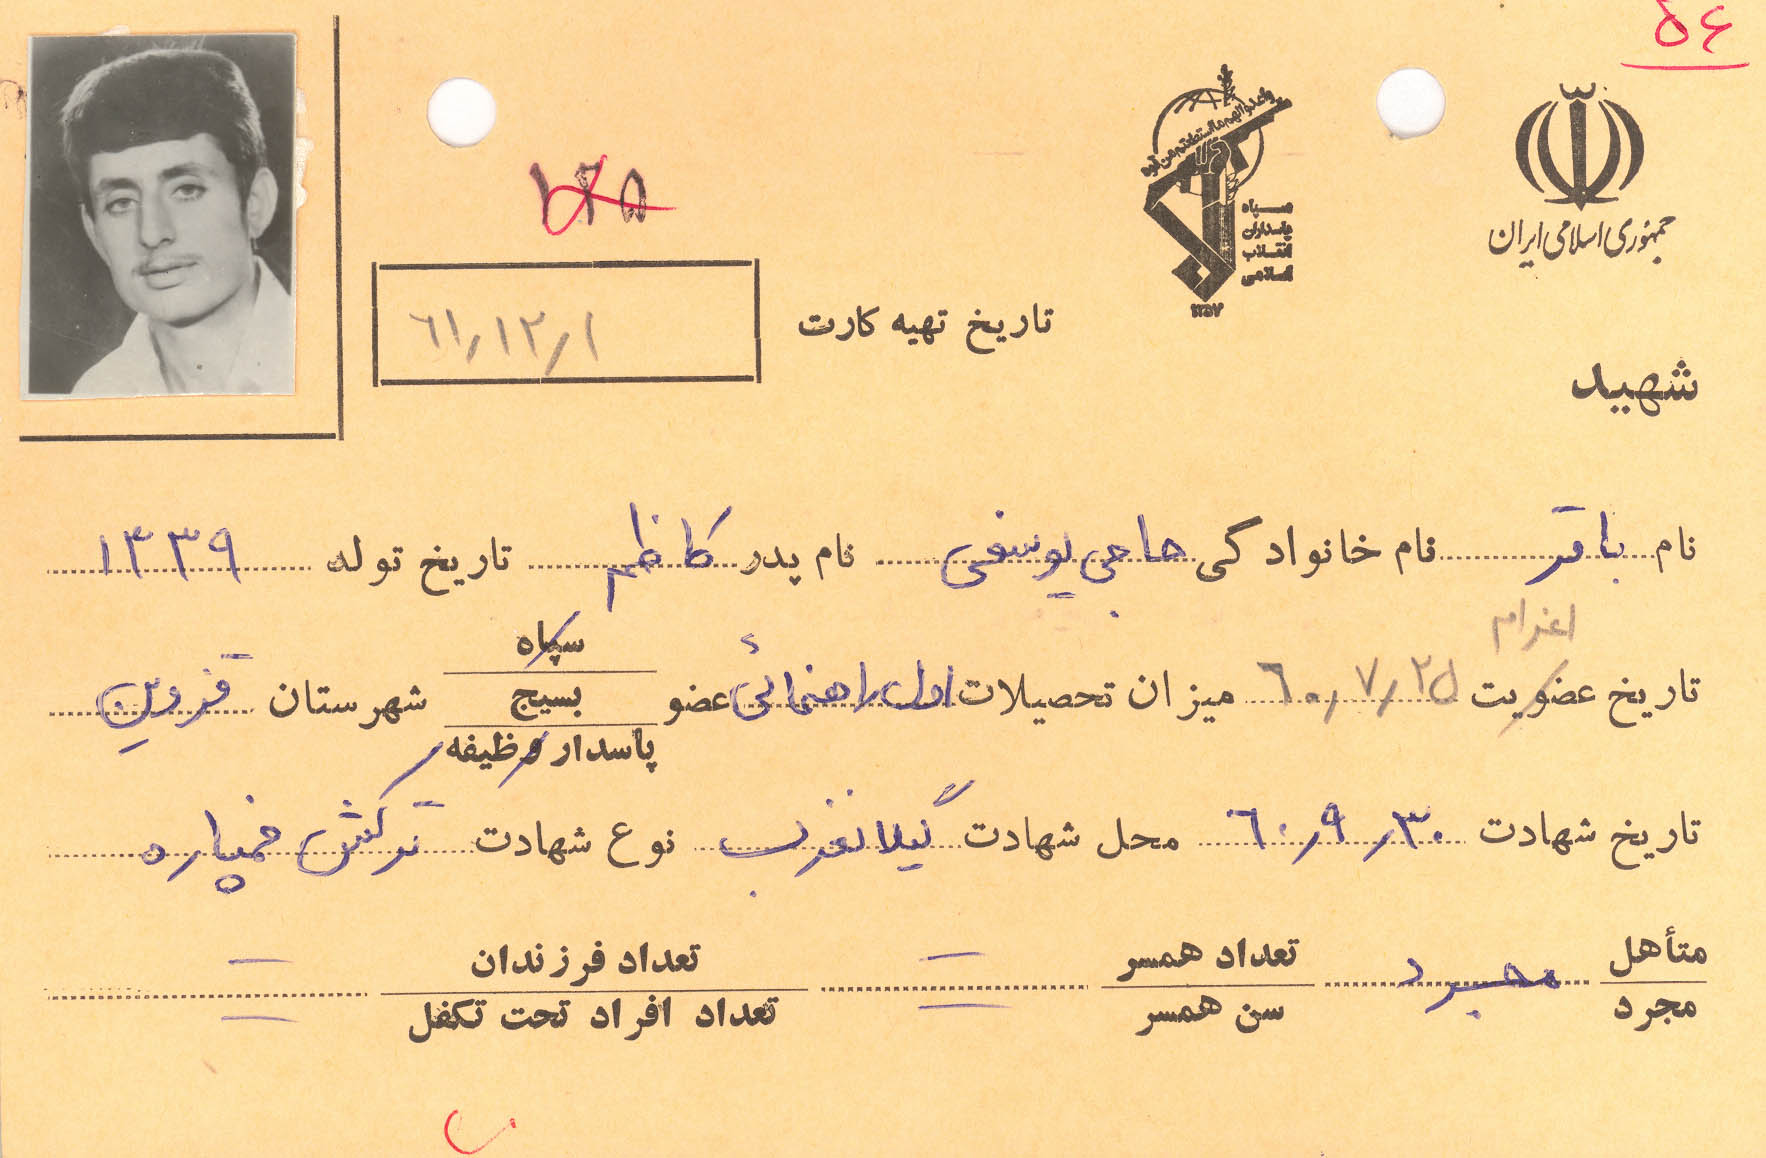 ۵۶
واعدوا لهم ما استطعتم من قوة
سپاه
پاسداران
انقلاب
اسلامی
۱۳۵۷
جمهوری اسلامی ایران
۱۲۵
تاریخ تهیه کارت ۶۱/۱۲/۱
شهید
نام باقر نام خانوادگی حاجی یوسفی نام پدر کاظم تاریخ تولد ۱۳۳۹
اعزام
تاریخ عضویت ۶۰/۷/۲۵ میزان تحصیلات اول راهنمائی عضو سپاه بسیج پاسدار وظیفه شهرستان قزوین
تاریخ شهادت ۶۰/۹/۳۰ محل شهادت گیلانغرب نوع شهادت ترکش خمپاره
متأهل مجرد مجرد تعداد همسر — سن همسر — تعداد فرزندان — تعداد افراد تحت تکفل —